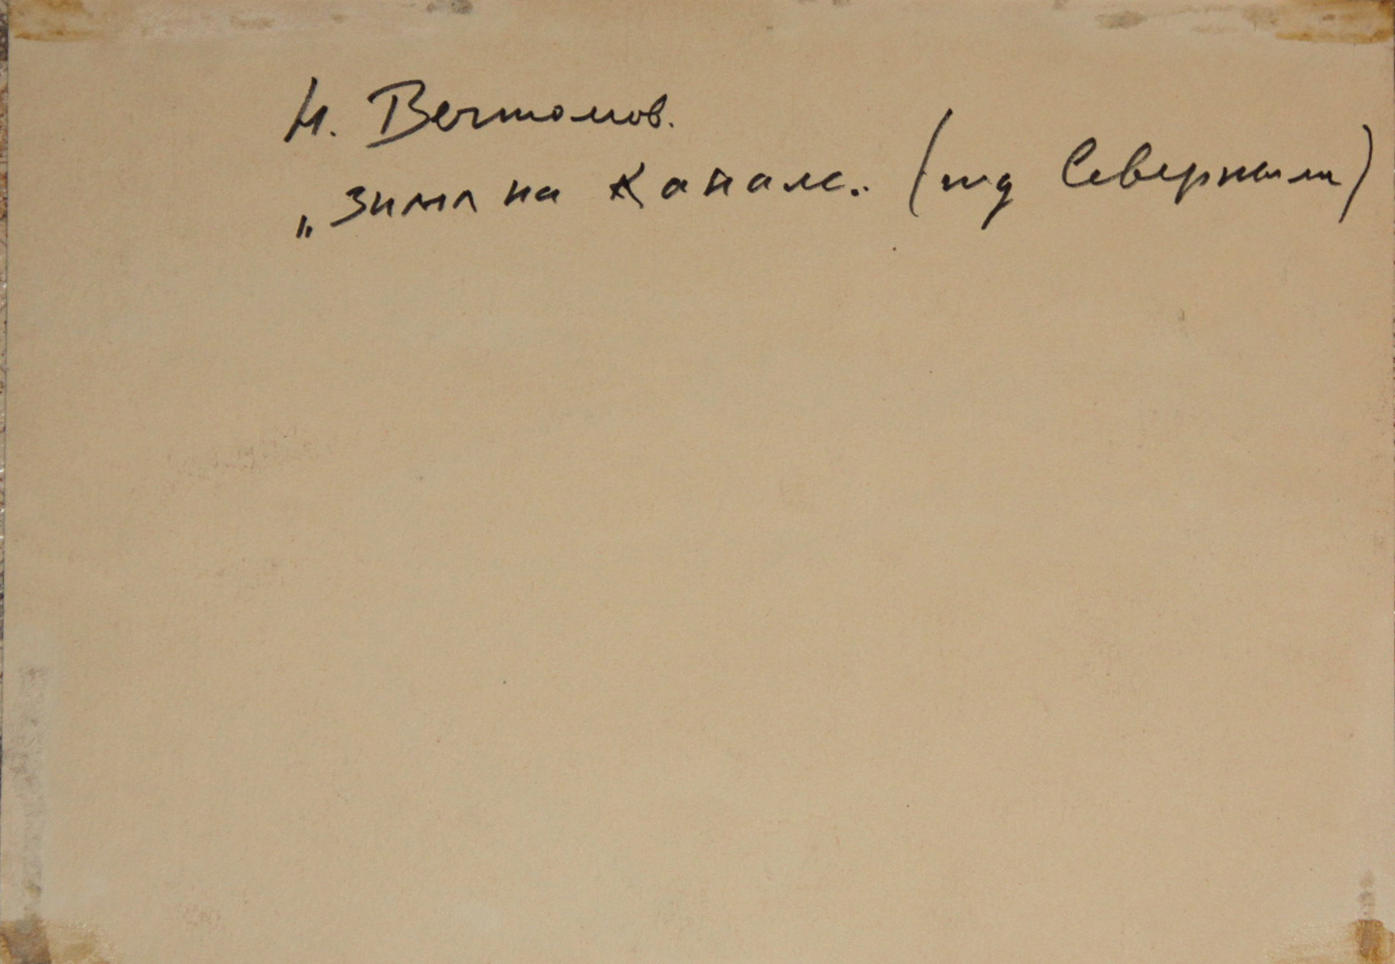 Н. Вечтомов.
„Зима на Канале.. (под Северным)